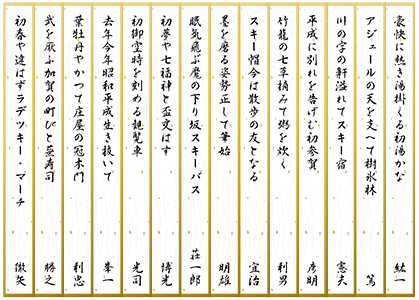 豪快に熱き湯掛くる初湯かな 紘一
アジュールの天を支へて樹氷林 篤
川の字の軒溢れてスキー宿 憲夫
平成に別れを告げむ初参賀 彦明
竹籠の七草摘みて粥を炊く 利男
スキー帽今は散歩の友となる 宣治
墨を磨る姿勢正して筆始 明雄
眠気飛ぶ魔の下り坂スキーバス 荘一郎
初夢や七福神と盃交はす 博光
初御空時を刻める観覧車 光司
去年今年昭和平成生き抜いて 峯一
葉牡丹やかつて庄屋の冠木門 利忠
武を尿ふ加賀の町びと蕪寿司 勝之
初春や違はずラデツキー・マーチ 徹矢